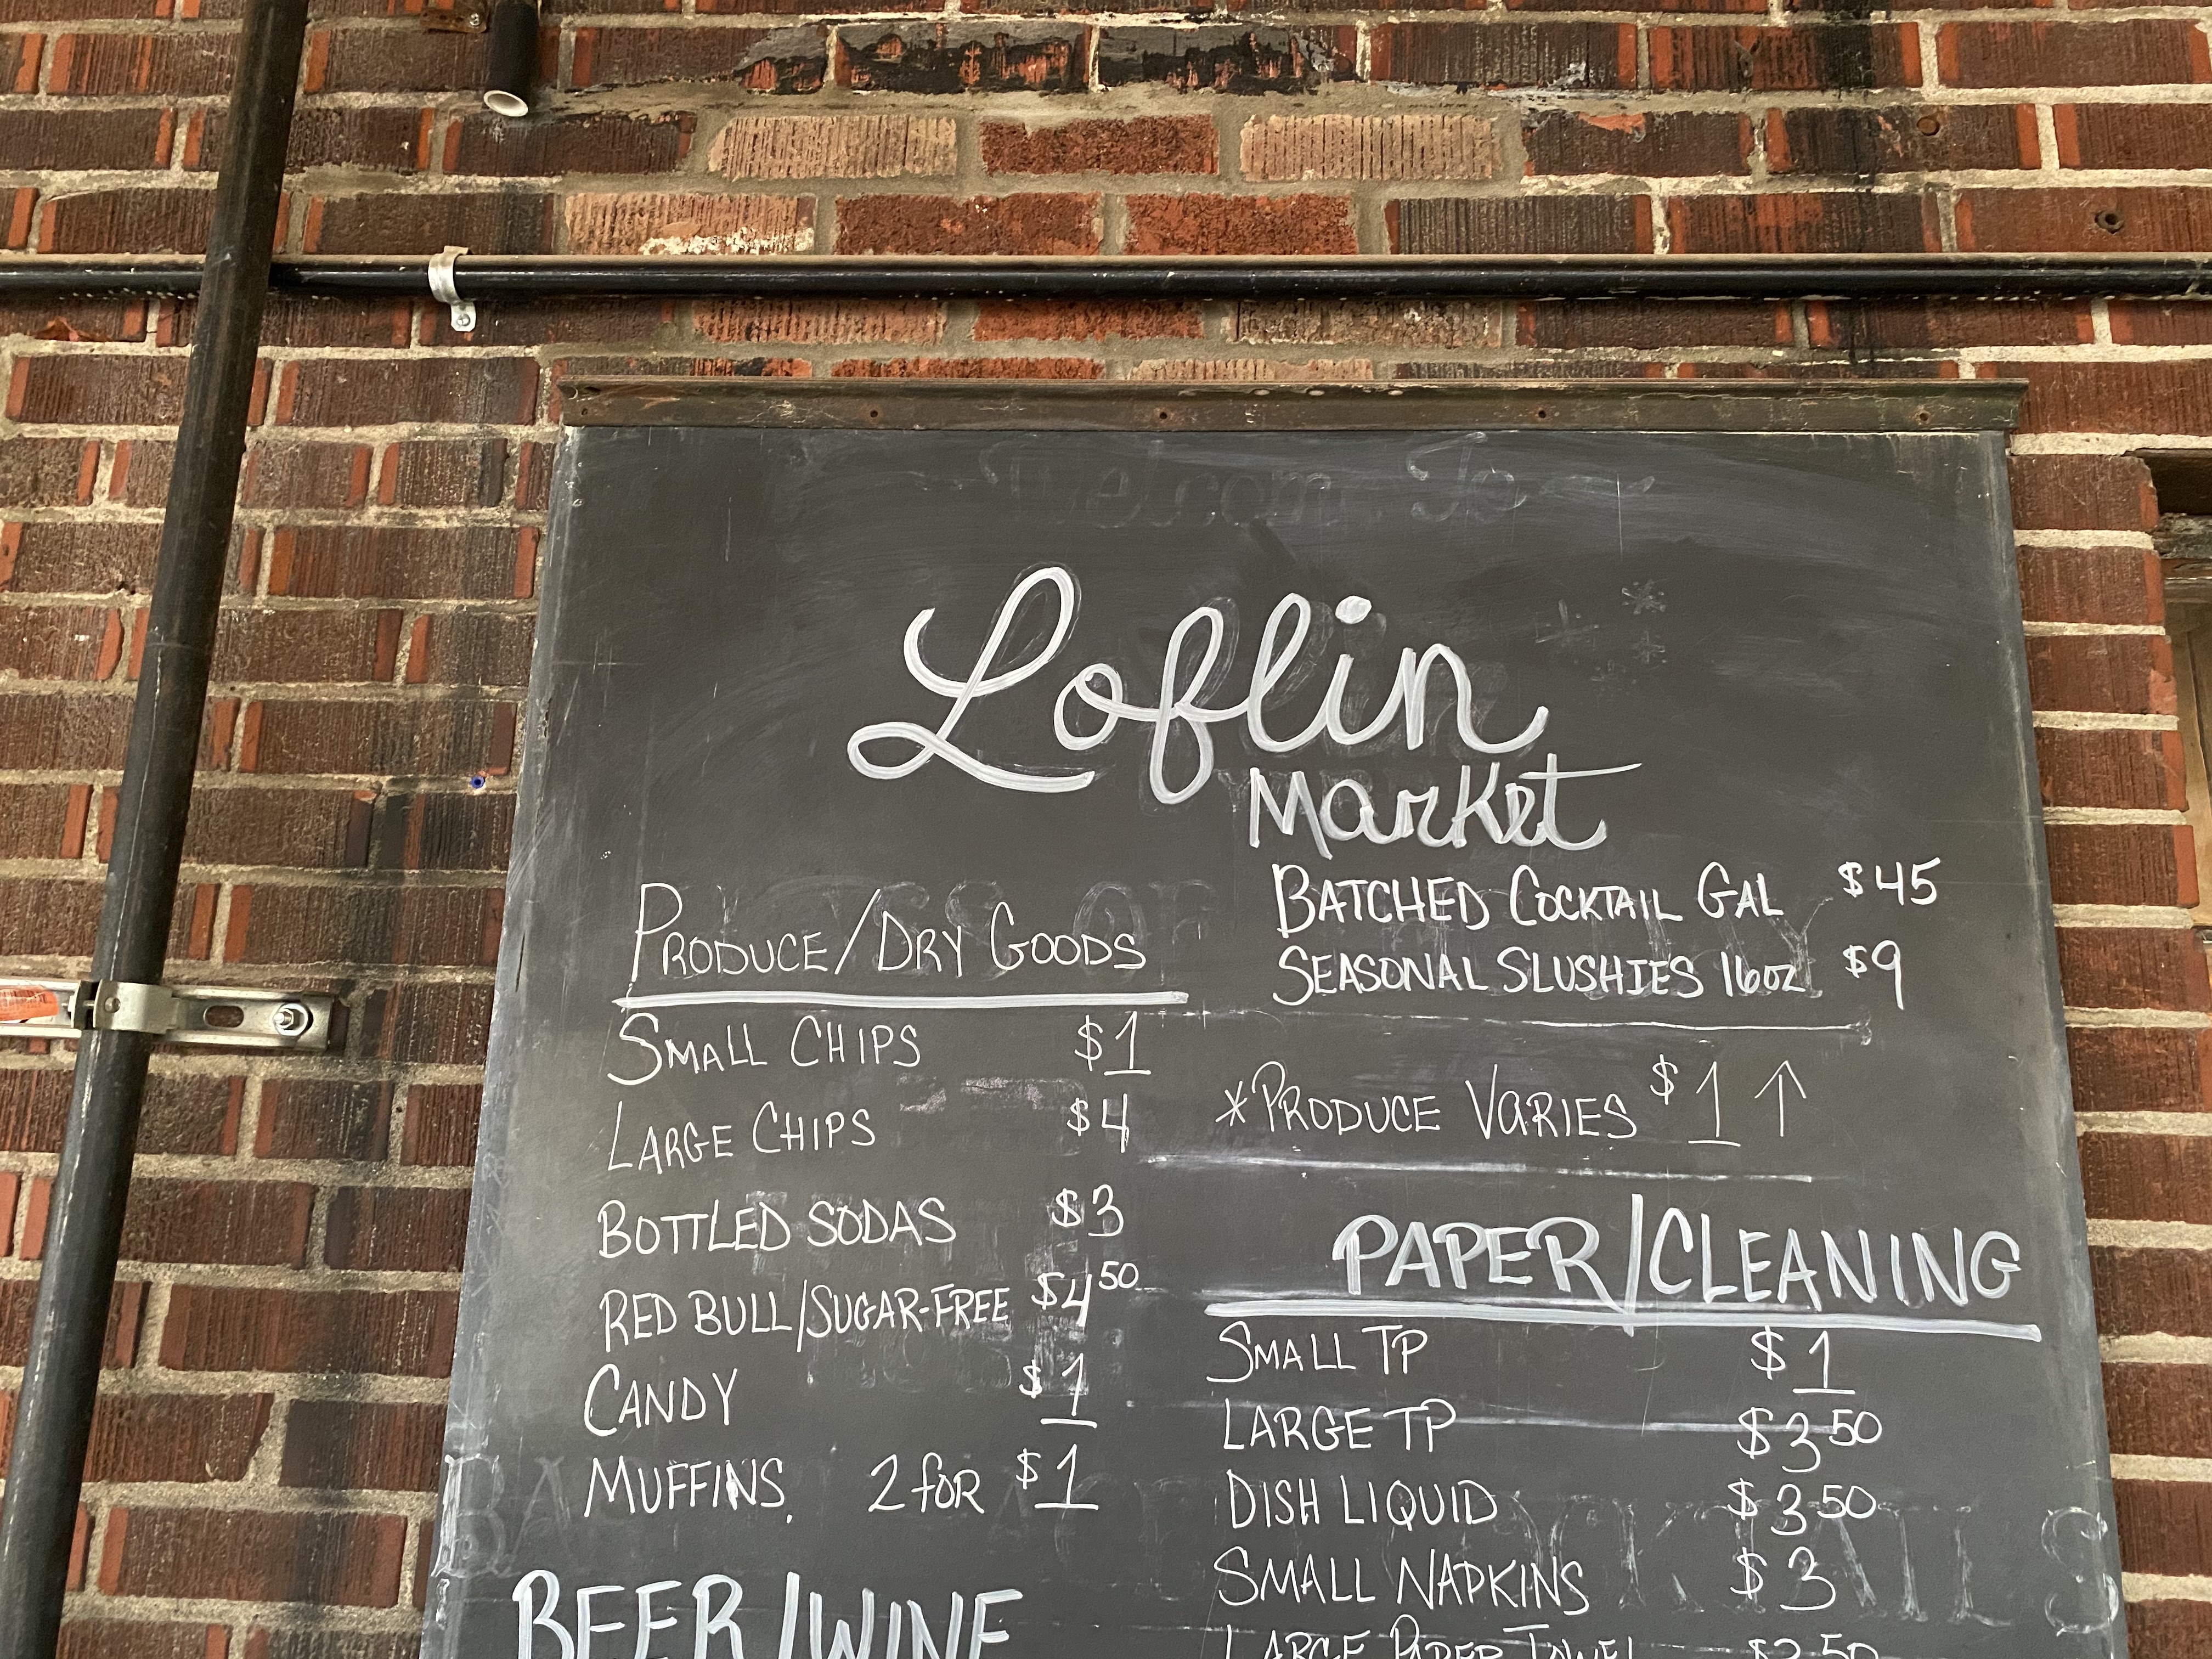 Welcome To
Loflin
Market
BATCHED COCKTAIL GAL $45
SEASONAL SLUSHIES 16oz $9
PRODUCE/DRY GOODS
SMALL CHIPS $1
LARGE CHIPS $4
BOTTLED SODAS $3
RED BULL/SUGAR-FREE $4 50
CANDY $1
MUFFINS. 2 for $1
BEER/WINE
*PRODUCE VARIES $1 ↑
PAPER/CLEANING
SMALL TP $1
LARGE TP $3 50
DISH LIQUID $3 50
SMALL NAPKINS $3
LARGE PAPER TOWEL